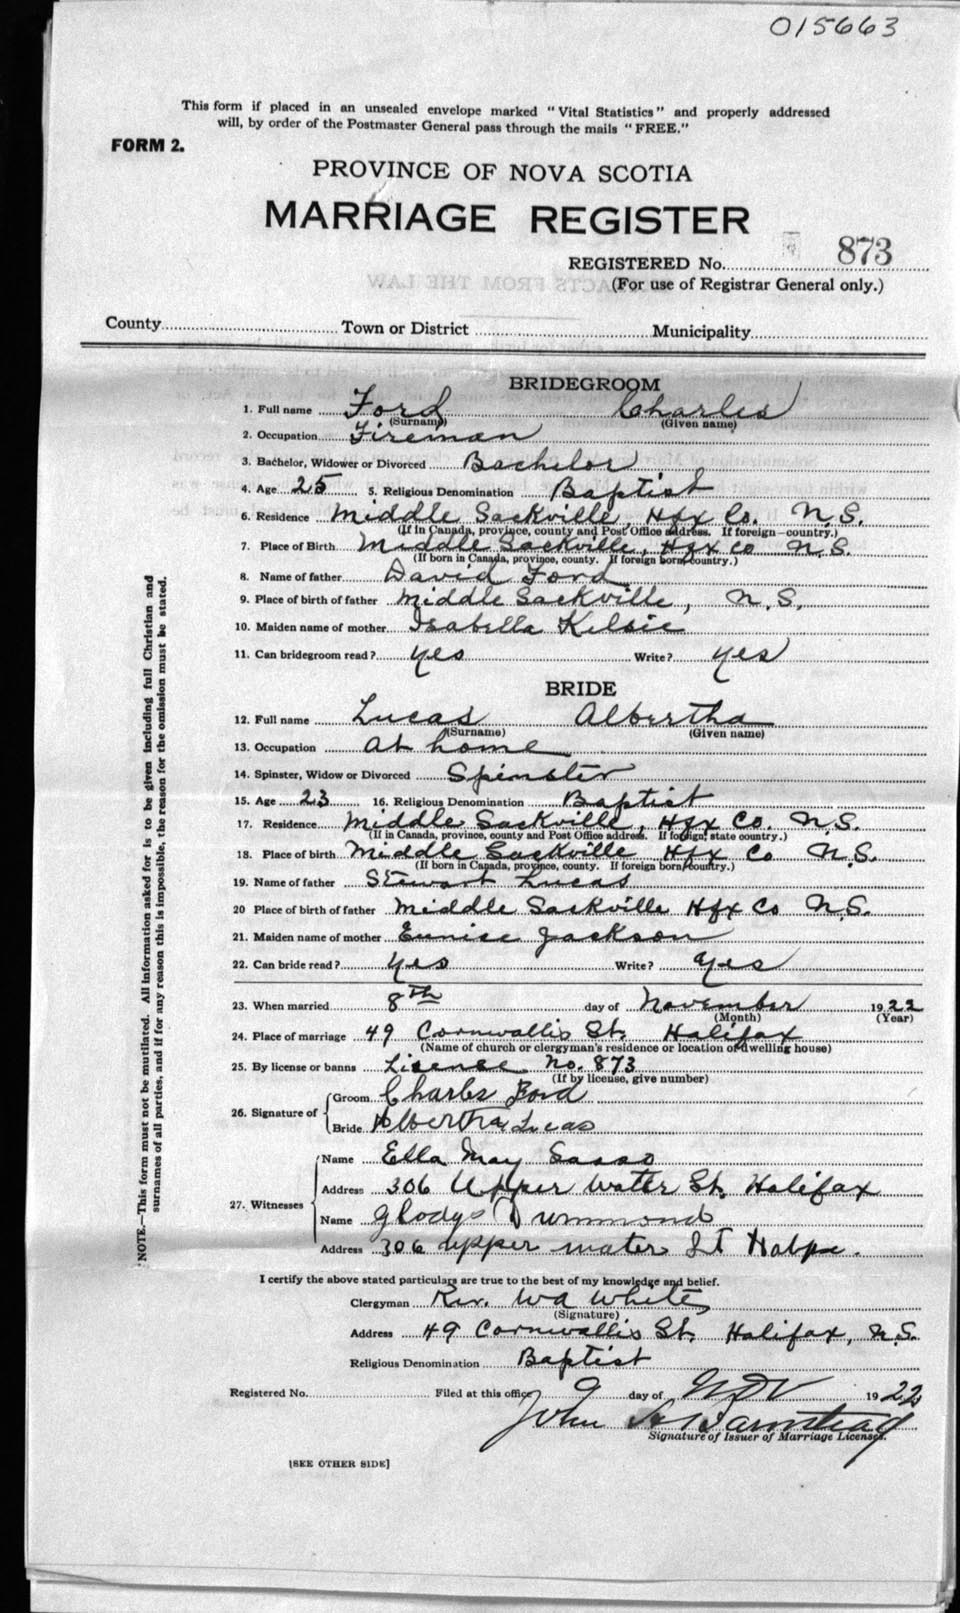 015663
This form if placed in an unsealed envelope marked "Vital Statistics" and properly addressed
will, by order of the Postmaster General pass through the mails "FREE."
FORM 2.
PROVINCE OF NOVA SCOTIA
MARRIAGE REGISTER
REGISTERED No. 873
(For use of Registrar General only.)
County Town or District Municipality
BRIDEGROOM
1. Full name Ford Charles
(Surname) (Given name)
2. Occupation Fireman
3. Bachelor, Widower or Divorced Bachelor
4. Age 25 5. Religious Denomination Baptist
6. Residence Middle Sackville, Hfx Co. N.S.
(If in Canada, province, county and Post Office address. If foreign—country.)
7. Place of Birth Middle Sackville, Hfx Co N.S.
(If born in Canada, province, county. If foreign born, country.)
8. Name of father David Ford
9. Place of birth of father Middle Sackville, N.S.
10. Maiden name of mother Isabella Kelsie
11. Can bridegroom read? yes Write? yes
BRIDE
12. Full name Lucas Albertha
(Surname) (Given name)
13. Occupation at home
14. Spinster, Widow or Divorced Spinster
15. Age 23 16. Religious Denomination Baptist
17. Residence Middle Sackville, Hfx Co. N.S.
(If in Canada, province, county and Post Office address. If foreign, state country.)
18. Place of birth Middle Sackville Hfx Co N.S.
(If born in Canada, province, county. If foreign born, country.)
19. Name of father Stewart Lucas
20 Place of birth of father Middle Sackville Hfx Co N.S.
21. Maiden name of mother Eunice Jackson
22. Can bride read? yes Write? yes
23. When married 8th day of November 1922
(Month) (Year)
24. Place of marriage 49 Cornwallis St. Halifax
(Name of church or clergyman's residence or location of dwelling house)
25. By license or banns License No. 873
(If by license, give number)
26. Signature of Groom Charles Ford
Bride Albertha Lucas
27. Witnesses Name Ella May Sasso
Address 306 Upper Water St. Halifax
Name Gladys Drummond
Address 306 upper water St
I certify the above stated particulars are true to the best of my knowledge and belief.
Clergyman Rev. WA White
(Signature)
Address 49 Cornwallis St. Halifax, N.S.
Religious Denomination Baptist
Registered No. Filed at this office 9 day of Nov 1922
John
Signature of Issuer of Marriage Licenses.
[SEE OTHER SIDE]
NOTE.—This form must not be mutilated. All information asked for is to be given including full Christian and
surnames of all parties, and if for any reason this is impossible, the reason for the omission must be stated.